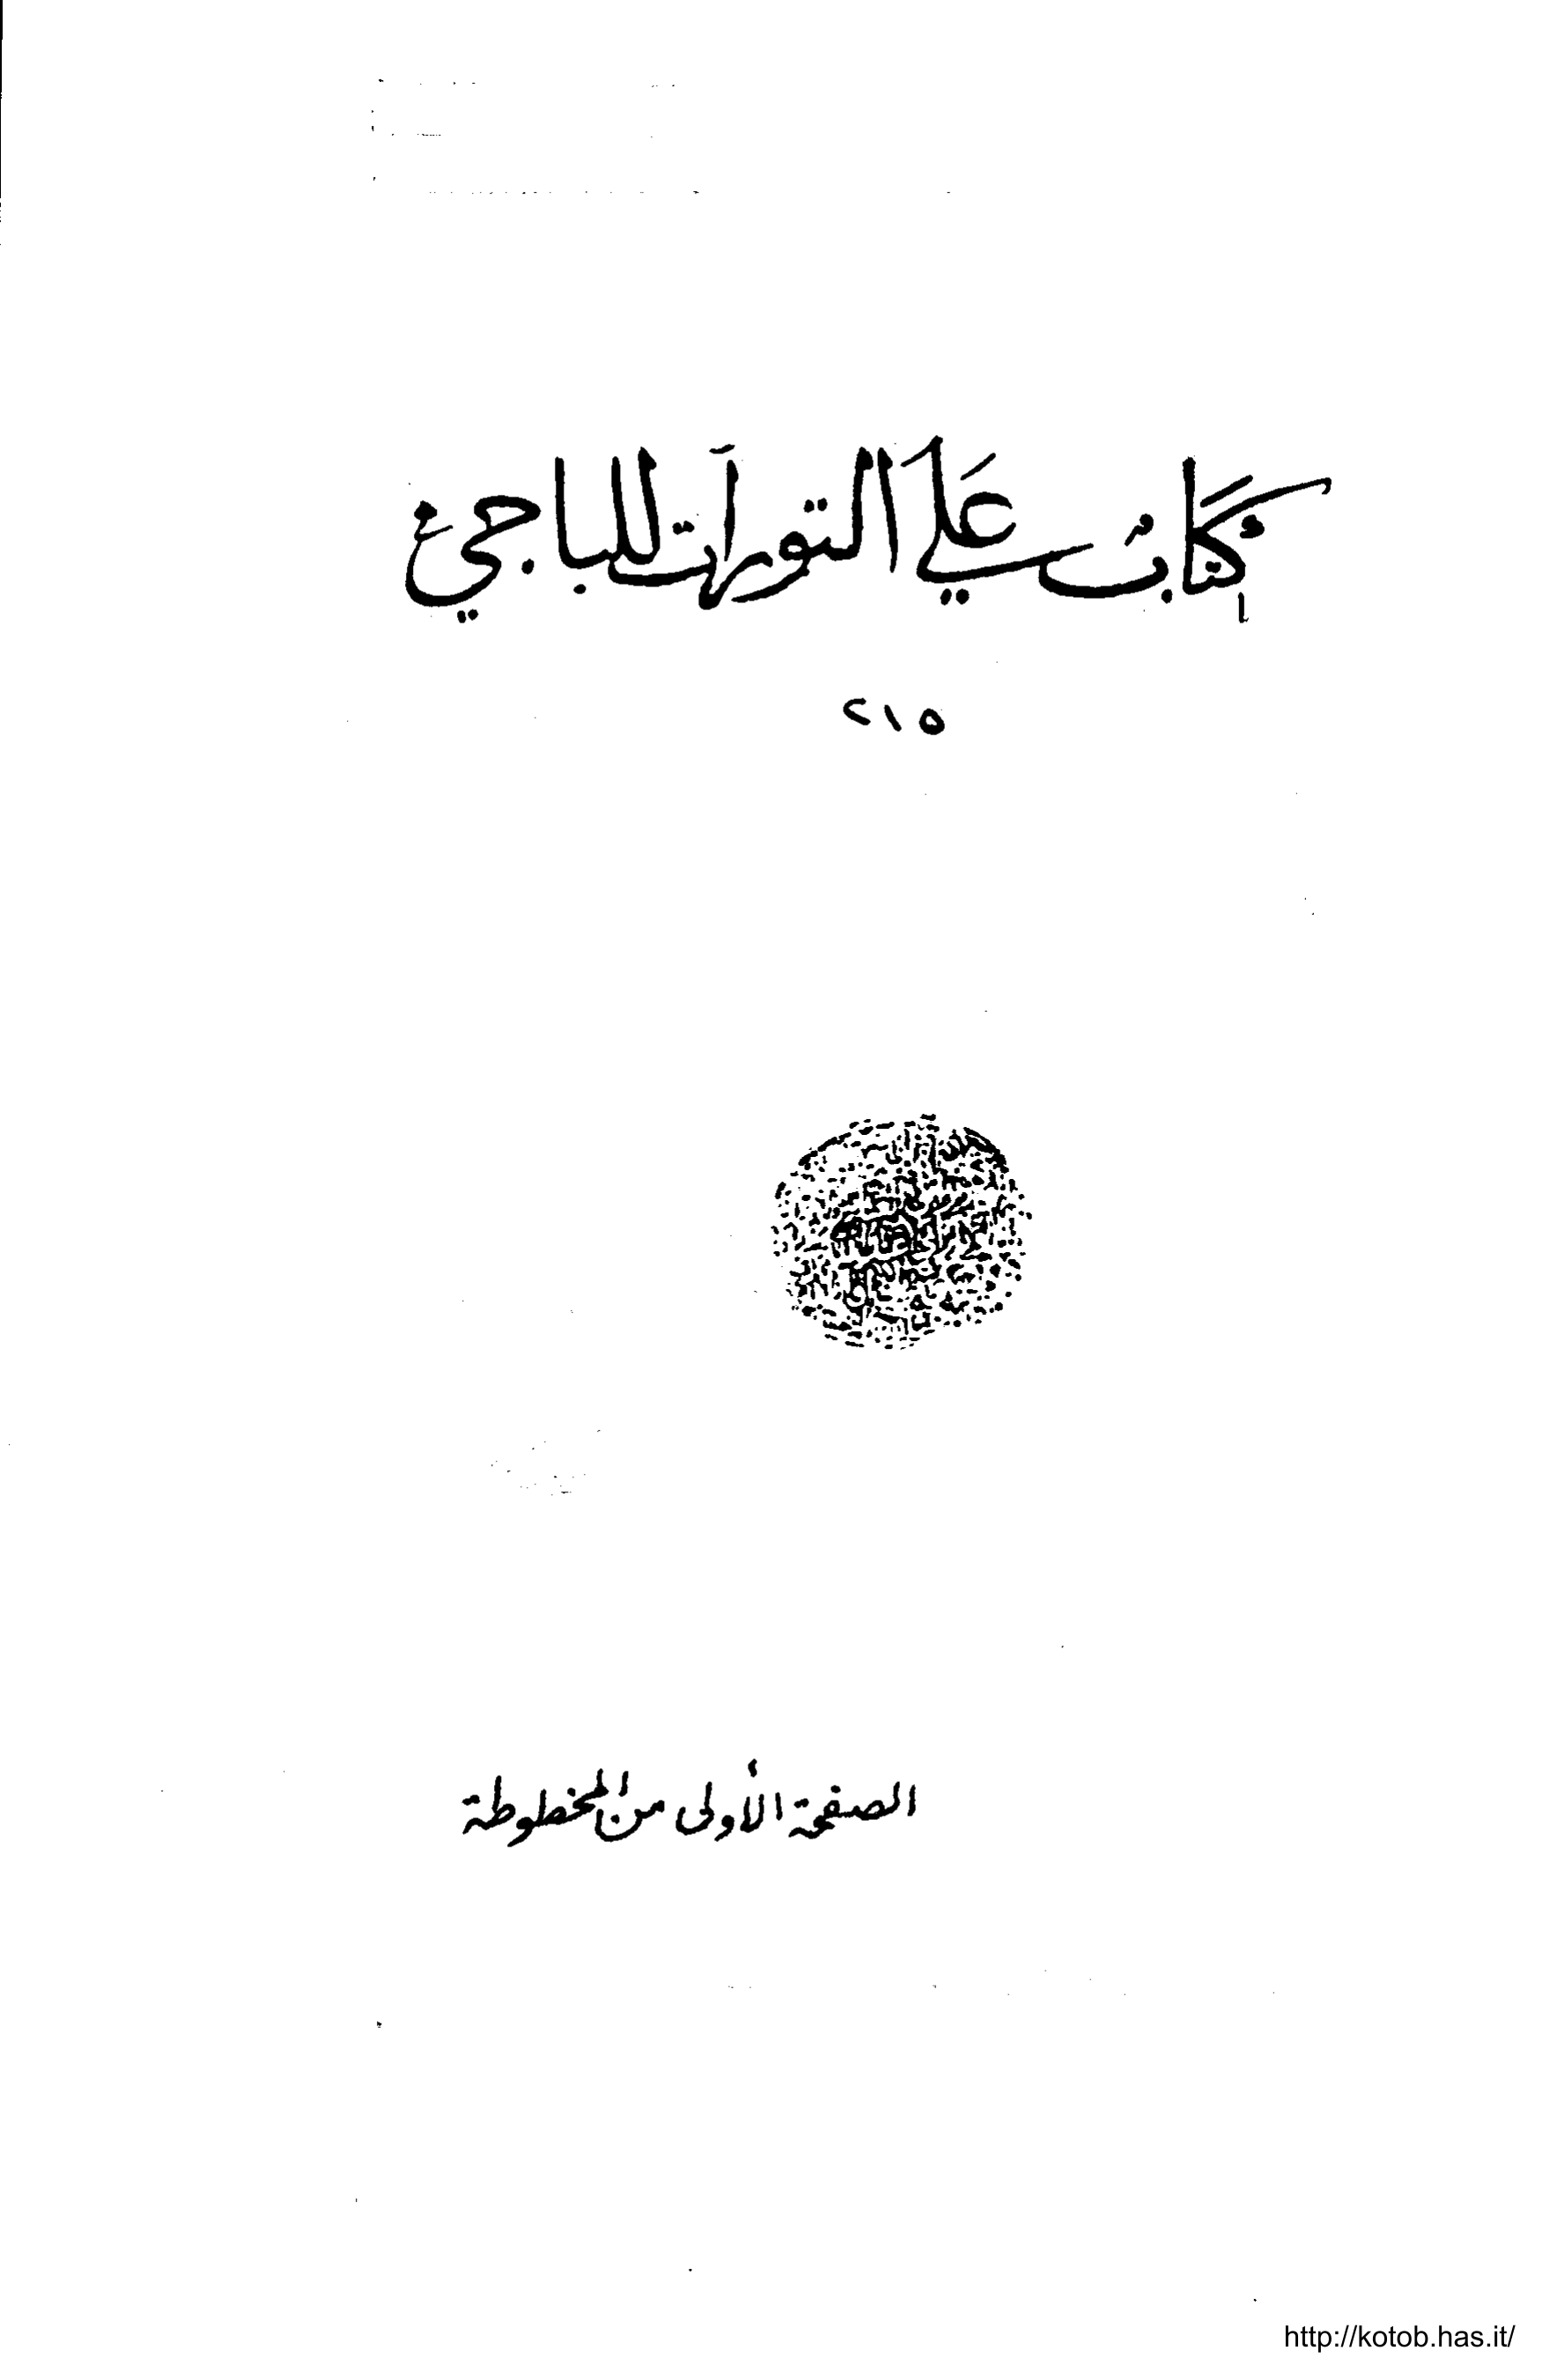 كِتَابُ عَلَي التورَات للباجيْ
٢١٥
الصفحة الأولى من المخطوطة
http://kotob.has.it/